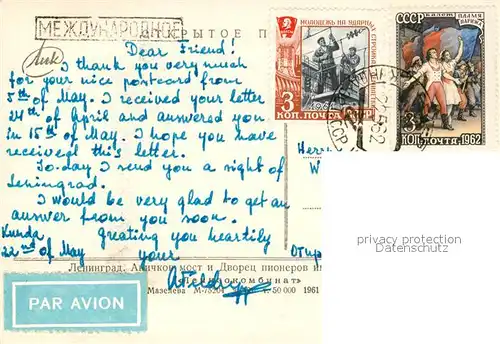 МЕЖДУНАРОДНОЕ
ОТКРЫТОЕ П
Dear Friend!
I thank you very much
for your nice postcard from
5th of May. I received your letter
24th of April and answered you
in 15th of May. I hope you have
received this letter.
To-day I send you a sight of
Leningrad.
I would be very glad to get an
answer from you soon.
Kunda
Greating you heartily
22nd of May
your
МОЛОДЕЖЬ НА УДАРНЫХ СТРОЙКАХ
1961
3
КОП. ПОЧТА СССР
СССР БАЛЕТ ПЛАМЯ ПАРИЖА
3
КОП. ПОЧТА 1962
W
privacy protection
Datenschutz
Ленинград. Аничков мост и Дворец пионеров
Мазелева М-75204 т. 50 000 1961
PAR AVION